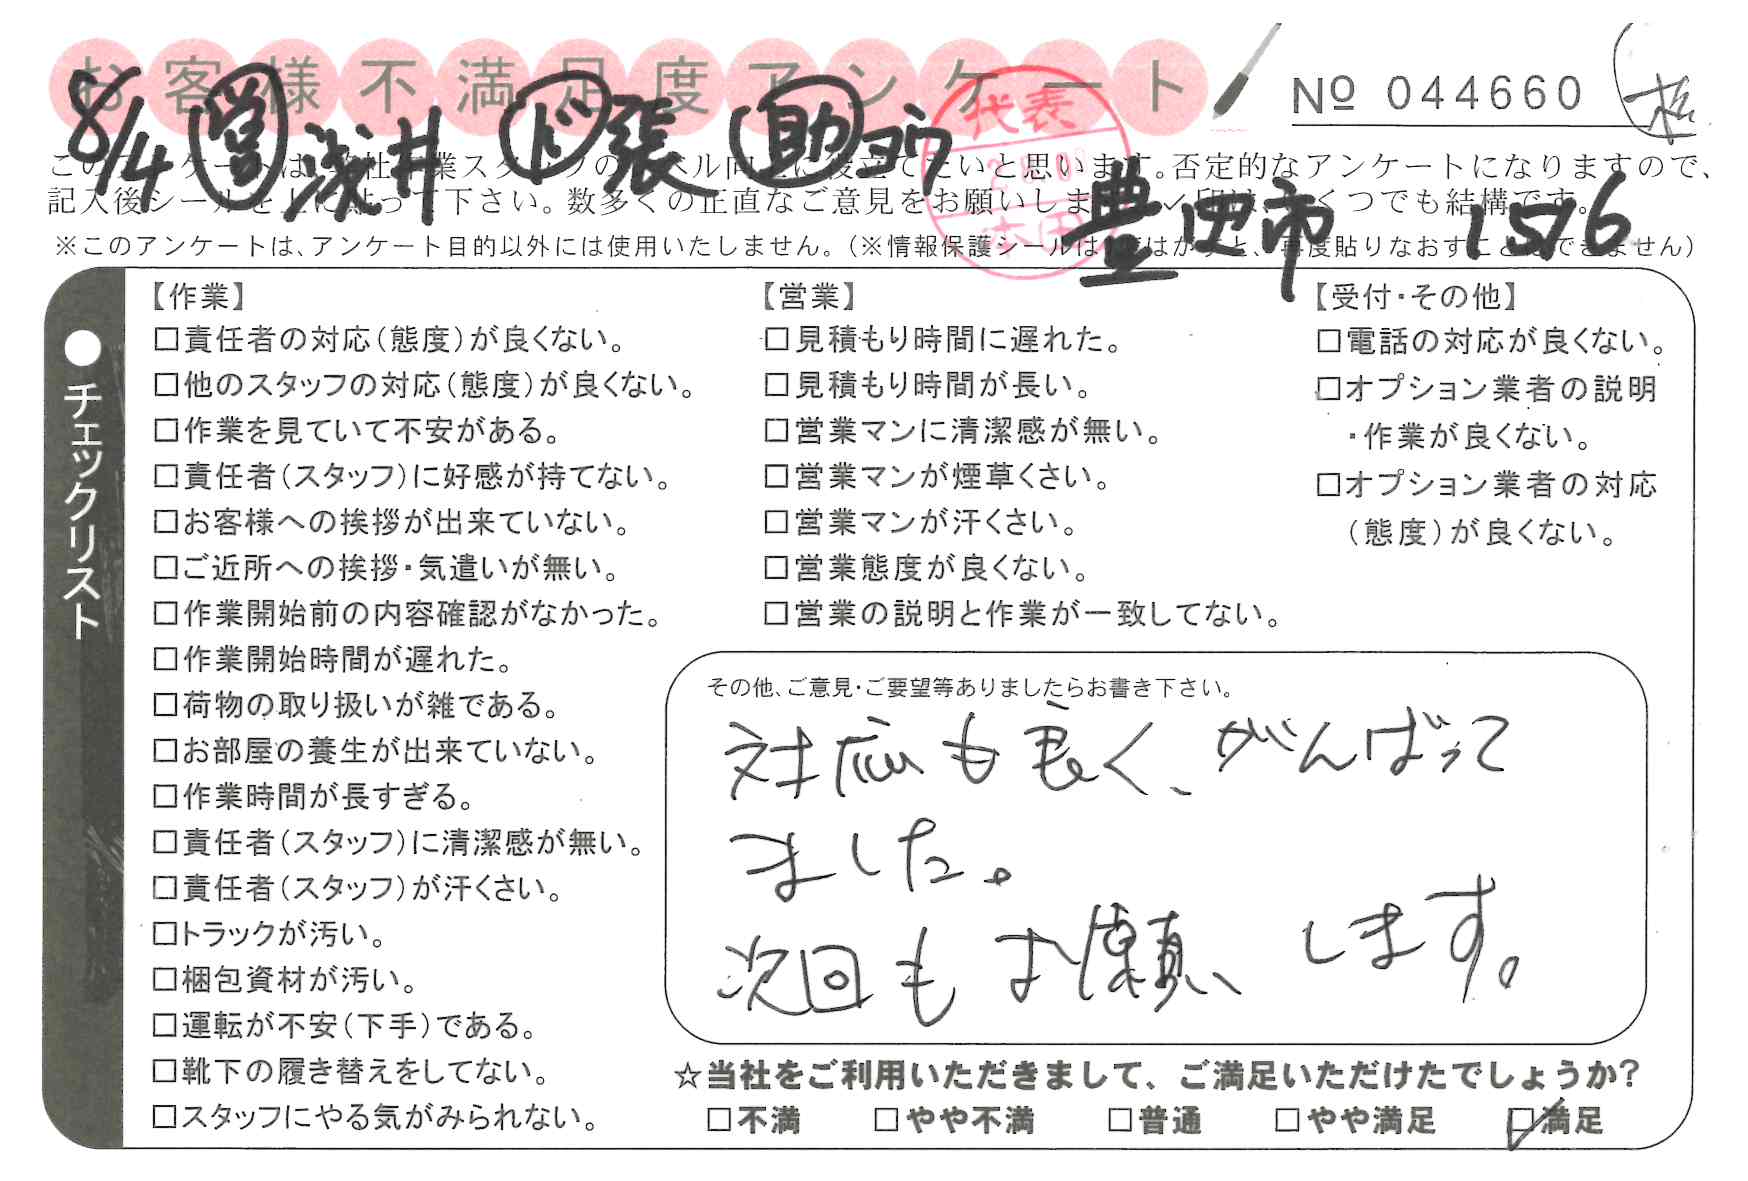 お客様不満足度アンケート
No 044660
8/4 営 浅井 ド 張 助
豊田市 1576
代表
本田
このアンケートは、弊社作業スタッフのレベル向上に役立てたいと思います。否定的なアンケートになりますので、
記入後シールを上に貼って下さい。数多くの正直なご意見をお願いします。✓印は、いくつでも結構です。
※このアンケートは、アンケート目的以外には使用いたしません。(※情報保護シールは1度はがすと、再度貼りなおすことはできません)
●チェックリスト
【作業】
□責任者の対応(態度)が良くない。
□他のスタッフの対応(態度)が良くない。
□作業を見ていて不安がある。
□責任者(スタッフ)に好感が持てない。
□お客様への挨拶が出来ていない。
□ご近所への挨拶・気遣いが無い。
□作業開始前の内容確認がなかった。
□作業開始時間が遅れた。
□荷物の取り扱いが雑である。
□お部屋の養生が出来ていない。
□作業時間が長すぎる。
□責任者(スタッフ)に清潔感が無い。
□責任者(スタッフ)が汗くさい。
□トラックが汚い。
□梱包資材が汚い。
□運転が不安(下手)である。
□靴下の履き替えをしてない。
□スタッフにやる気がみられない。
【営業】
□見積もり時間に遅れた。
□見積もり時間が長い。
□営業マンに清潔感が無い。
□営業マンが煙草くさい。
□営業マンが汗くさい。
□営業態度が良くない。
□営業の説明と作業が一致してない。
【受付・その他】
□電話の対応が良くない。
□オプション業者の説明
・作業が良くない。
□オプション業者の対応
(態度)が良くない。
その他、ご意見・ご要望等ありましたらお書き下さい。
対応も良く、がんばって
ました。
次回もお願いします。
☆当社をご利用いただきまして、ご満足いただけたでしょうか?
□不満 □やや不満 □普通 □やや満足 ☑満足